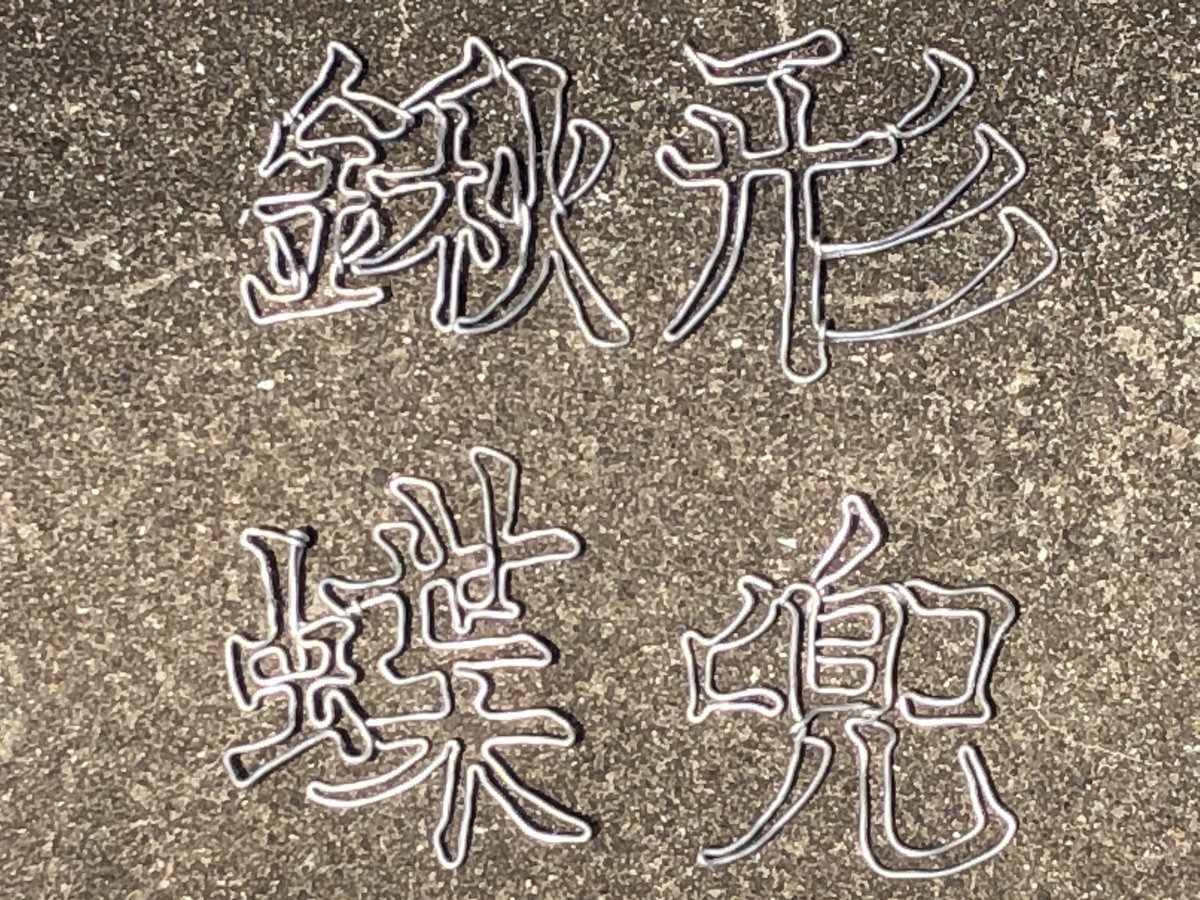 鍬形
蝶兜